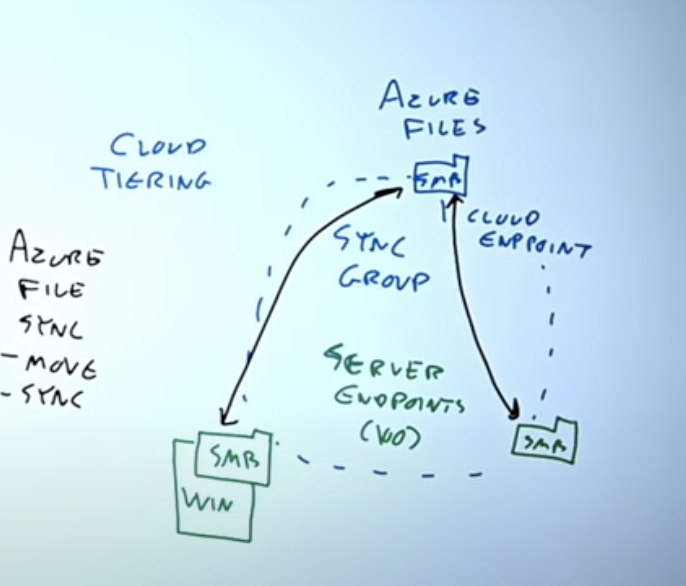 AZURE
FILES
CLOUD
TIERING
SMB
CLOUD
ENDPOINT
SYNC
GROUP
AZURE
FILE
SYNC
- MOVE
- SYNC
SERVER
ENDPOINTS
(100)
SMB
SMB
WIN